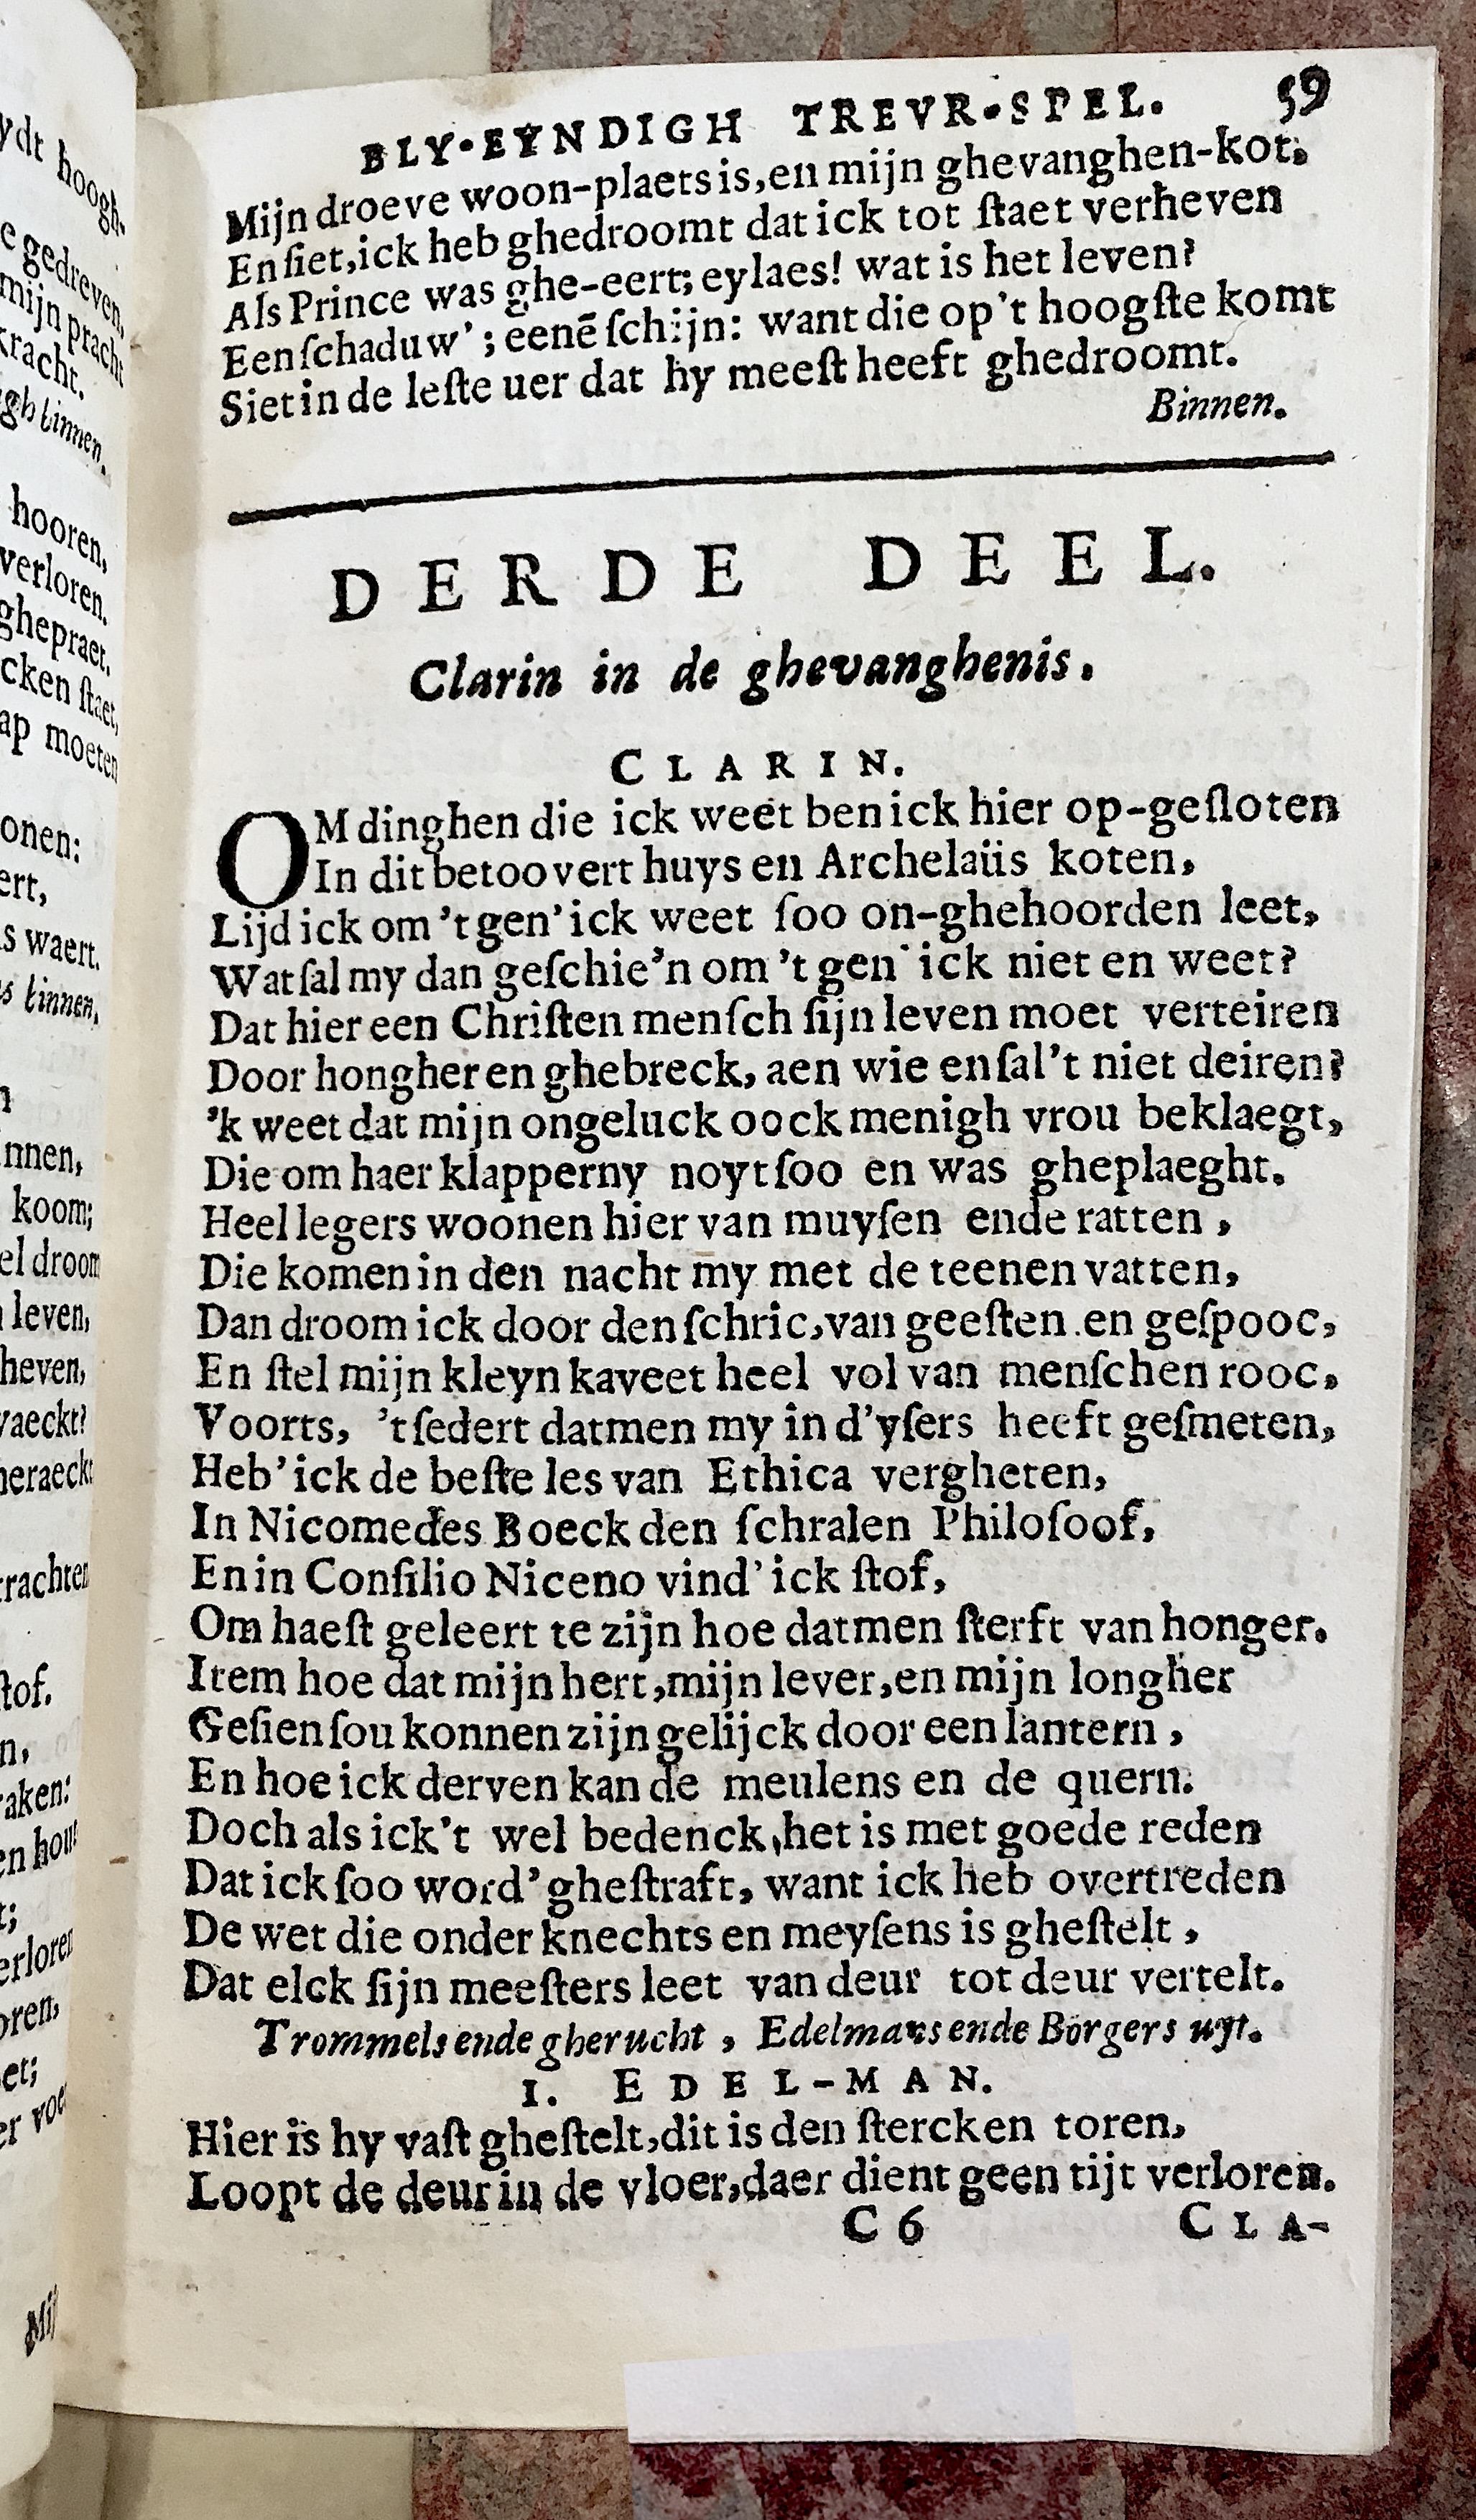 BLY-EYNDIGH TREVR-SPEL. 59
Mijn droeve woon-plaets is, en mijn ghevanghen-kot.
En ſiet, ick heb ghedroomt dat ick tot ſtaet verheven
Als Prince was ghe-eert; eylaes! wat is het leven?
Een ſchaduw'; eenē ſchijn: want die op't hoogſte komt
Siet in de leſte uer dat hy meeſt heeft ghedroomt.
Binnen.
DERDE DEEL.
Clarin in de ghevanghenis.
CLARIN.
OM dinghen die ick weet ben ick hier op-geſloten
In dit betoovert huys en Archelaüs koten,
Lijd ick om 't gen' ick weet ſoo on-ghehoorden leet,
Wat ſal my dan geſchie'n om 't gen' ick niet en weet?
Dat hier een Chriſten menſch ſijn leven moet verteiren
Door hongher en ghebreck, aen wie en ſal't niet deiren?
'k weet dat mijn ongeluck oock menigh vrou beklaegt,
Die om haer klapperny noyt ſoo en was gheplaeght.
Heel legers woonen hier van muyſen ende ratten,
Die komen in den nacht my met de teenen vatten,
Dan droom ick door den ſchric, van geeſten en geſpooc,
En ſtel mijn kleyn kaveet heel vol van menſchen rooc.
Voorts, 't ſedert datmen my in d'yſers heeft geſmeten,
Heb' ick de beſte les van Ethica vergheten,
In Nicomedes Boeck den ſchralen Philoſoof,
En in Conſilio Niceno vind' ick ſtof,
Om haeſt geleert te zijn hoe datmen ſterft van honger.
Item hoe dat mijn hert, mijn lever, en mijn longher
Geſien ſou konnen zijn gelijck door een lantern,
En hoe ick derven kan de meulens en de quern.
Doch als ick't wel bedenck, het is met goede reden
Dat ick ſoo word' gheſtraft, want ick heb overtreden
De wet die onder knechts en meyſens is gheſtelt,
Dat elck ſijn meeſters leet van deur tot deur vertelt.
Trommels ende gherucht, Edelmans ende Borgers uyt.
1. EDEL-MAN.
Hier is hy vaſt gheſtelt, dit is den ſtercken toren,
Loopt de deur in de vloer, daer dient geen tijt verloren.
C 6 CLA-